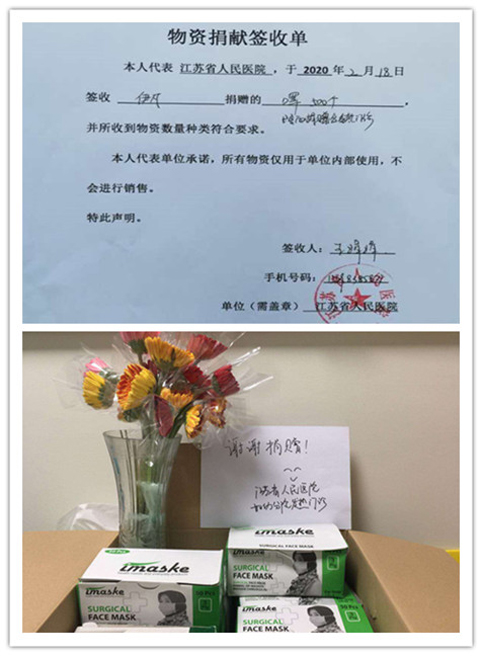 物资捐献签收单
本人代表 江苏省人民医院，于 2020 年 2 月 18 日
签收 捐赠的 口罩 500个，
并所收到物资数量种类符合要求。
本人代表单位承诺，所有物资仅用于单位内部使用，不
会进行销售。
特此声明。
签收人：
手机号码：
单位（需盖章） 江苏省人民医院
谢谢捐赠！
江苏省人民医院
发热门诊
imaske
SURGICAL FACE MASK
imaske
imaske
SURGICAL
FACE MASK
imaske
SURGICAL
FACE MASK
50 Pcs
imaske
SURGICAL
FACE MASK
50 Pcs